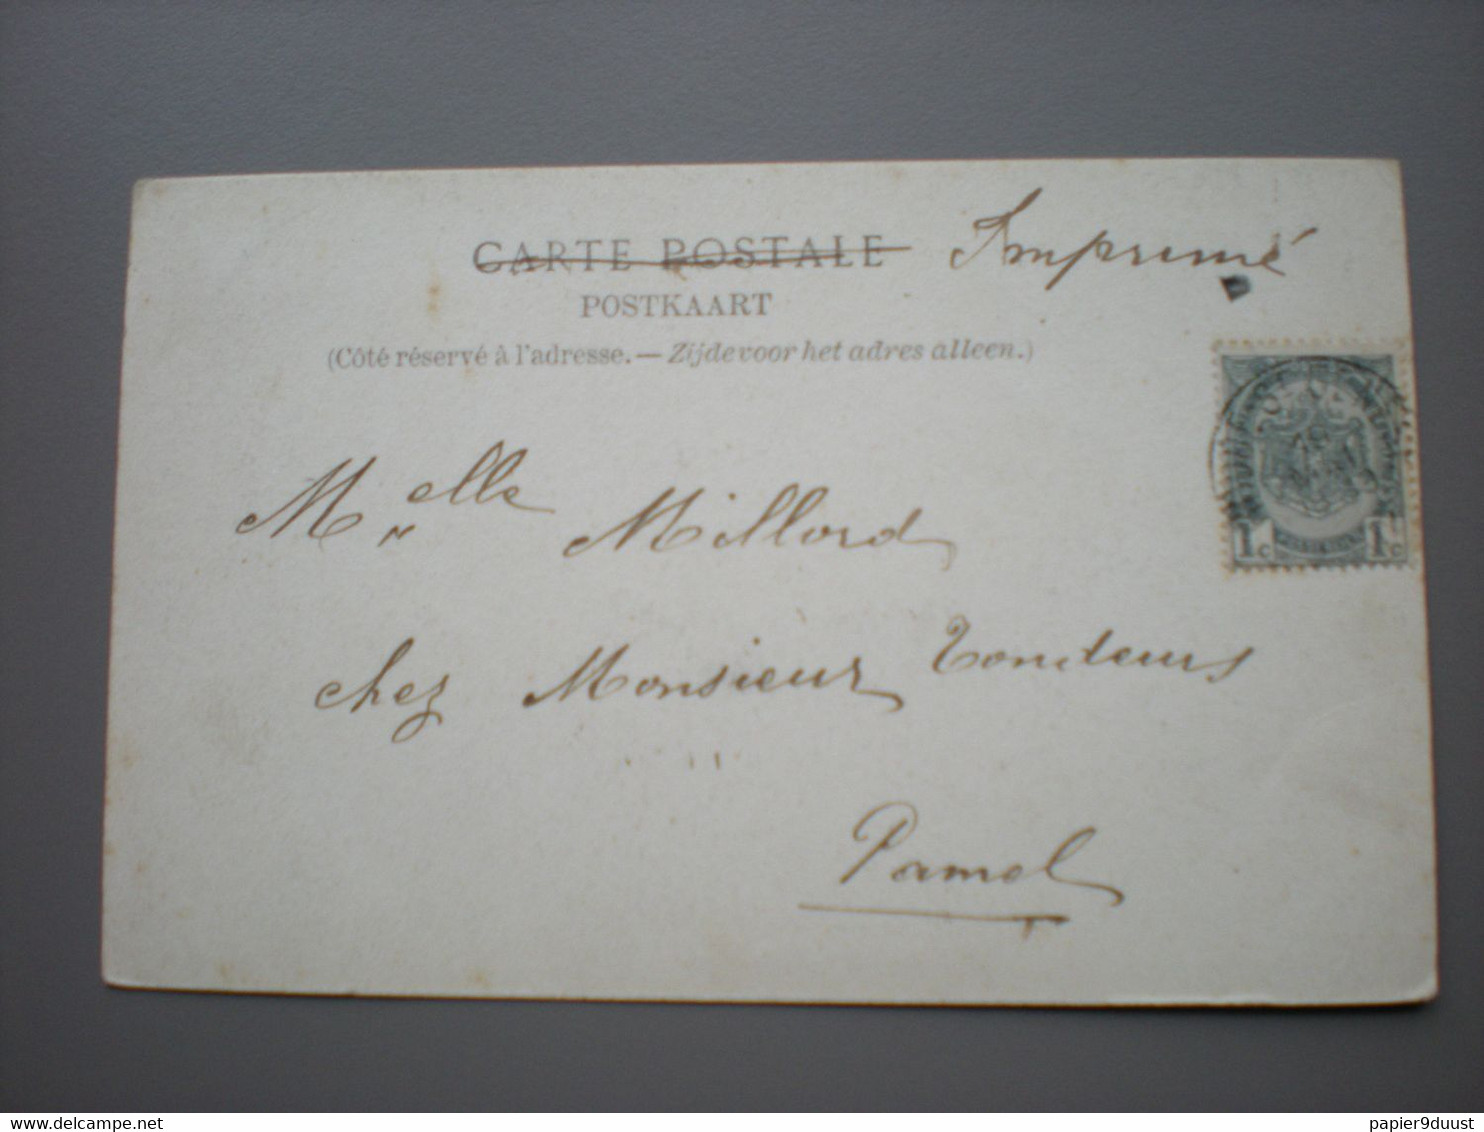 CARTE POSTALE Imprimé
POSTKAART
(Côté réservé à l'adresse. — Zijde voor het adres alleen.)
Melle Millord
chez Monsieur Tondeurs
Pamel
1c 1c
delcampe.net
papier9duust